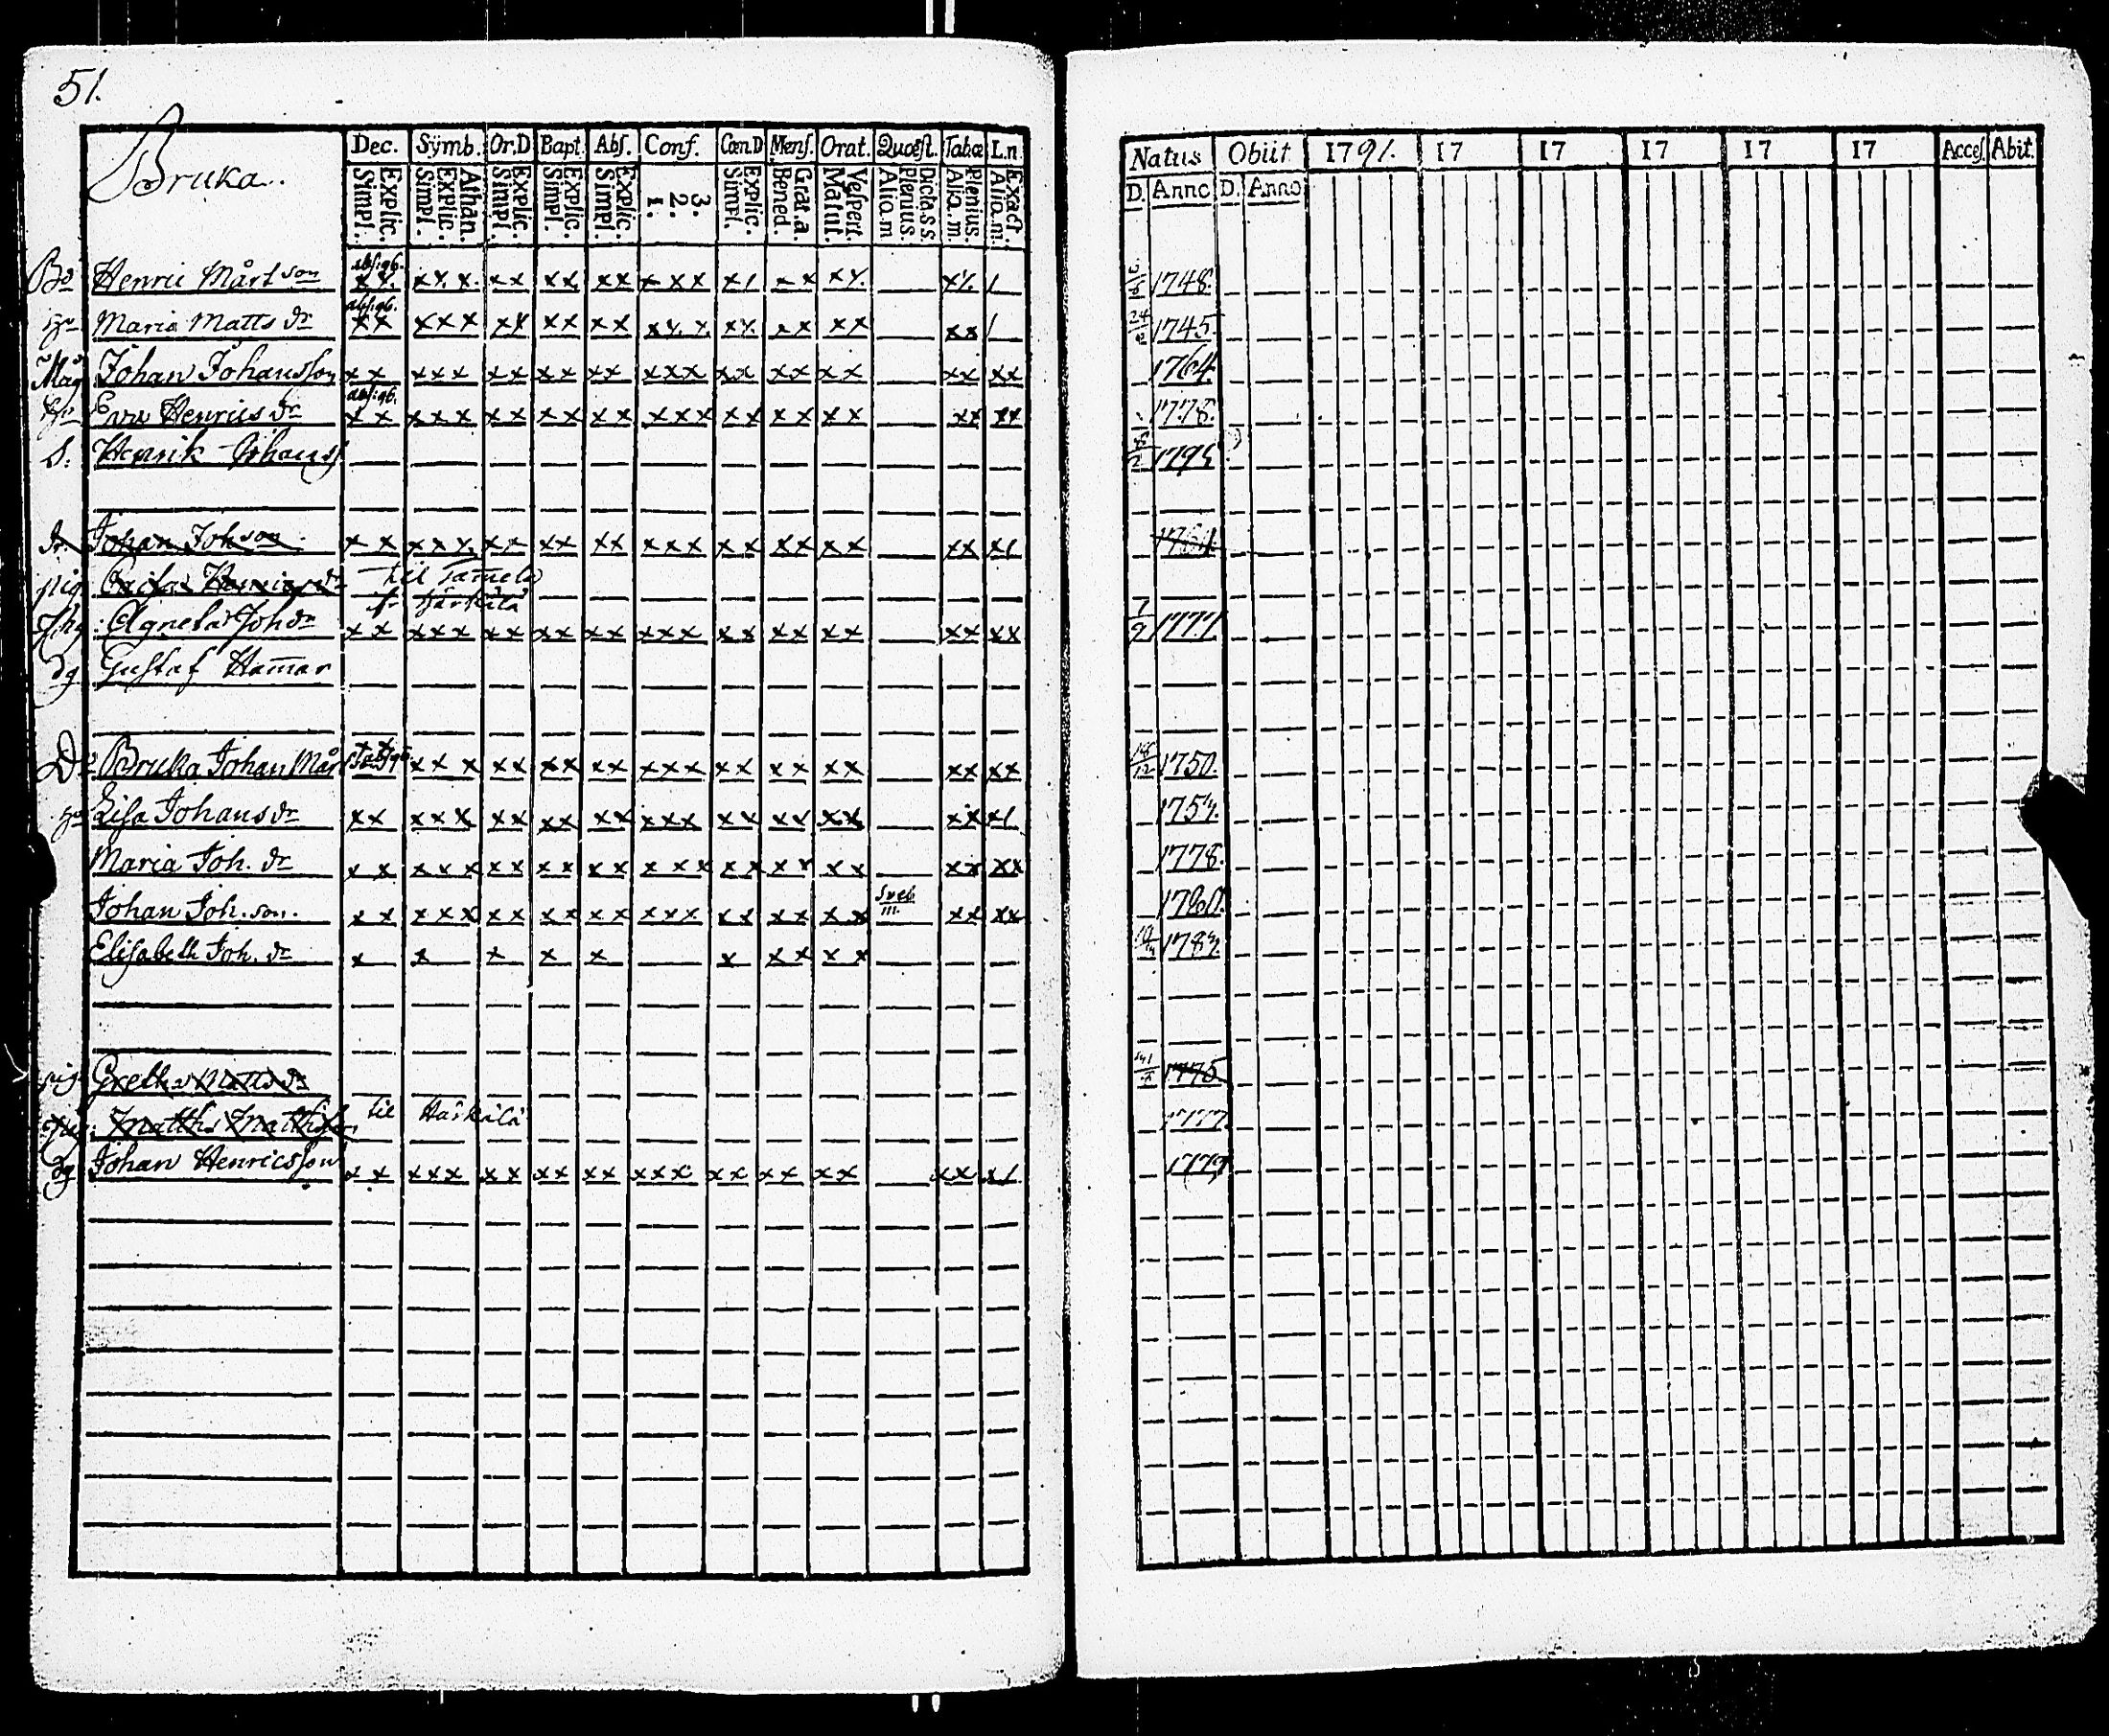 51.
Bruka.
Dec. Symb. Or.D Bapt. Abſ. Conf. CœnD Menſ. Orat. Quœſt. Tabœ L.n
Explic. Simpl. Athan. Explic. Simpl. Explic. Simpl. Explic. Simpl. Explic. Simpl. 3. 2. 1. Explic. Simpl. Grat.a. Bened. Veſpert. Matut. Dicta.s.s. Plenius. Alio.m Plenius. Alio.m. Exact. Alio.m.
Natus Obiit 1791. 17 17 17 17 17 Acceſ. Abit.
D. Anno D. Anno
abſ: 96.
Bd Henric Mårtson xx xxx xx xx xx xxx x/ xx xx x/. / 1748.
abſ: 96.
Maria Matts dr xx xxx xx xx xx xxx xx xx xx xx / 24 1745.
Måg Johan Johansſon xx xxx xx xx xx xxx xx xx xx xx xx 1764.
abſ: 96.
Eva Henrics dr xx xxx xx xx xx xxx xx xx xx xx xx 1778.
S: Henrik Johansſ
dr. Johan Joh son xx xxx xx xx xx xxx xx xx xx xx x/
pig til Samela
fr Härkälä
Agneta Joh dr xx xxx xx xx xx xxx xx xx xx xx xx 1777.
dg Guſtaf Hamar
Do Bruka Johan Mår xxx xx xx xx xxx xx xx xx xx xx 18/12 1750.
Liſa Johans dr xx xxx xx xx xx xxx xx xx xx xx x/ 175
Maria Joh. dr xx xxx xx xx xx xxx xx xx xx xx xx 1778.
Johan Joh. son. xx xxx xx xx xx xxx xx xx xx Sveb m. xx xx
Eliſabeth Joh. dr x x x x x x xx xx 178
pig Greth Matts dr 1775
Matths Mattsſon til Härkälä 1777.
dg Johan Henricsſon xx xxx xx xx xx xxx xx xx xx xx x/ 1779